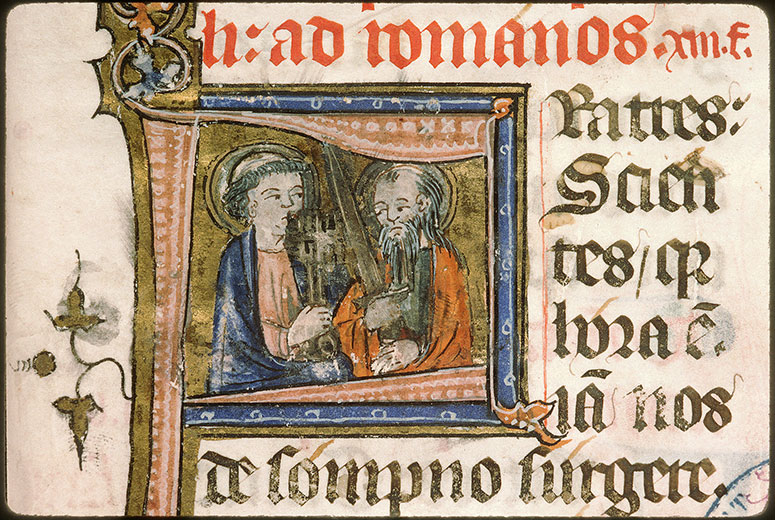 h: ad romanos. xiii. f.
Ratres:
Scien
tes / qr
hora ē.
iā nos
de sompno surgere.